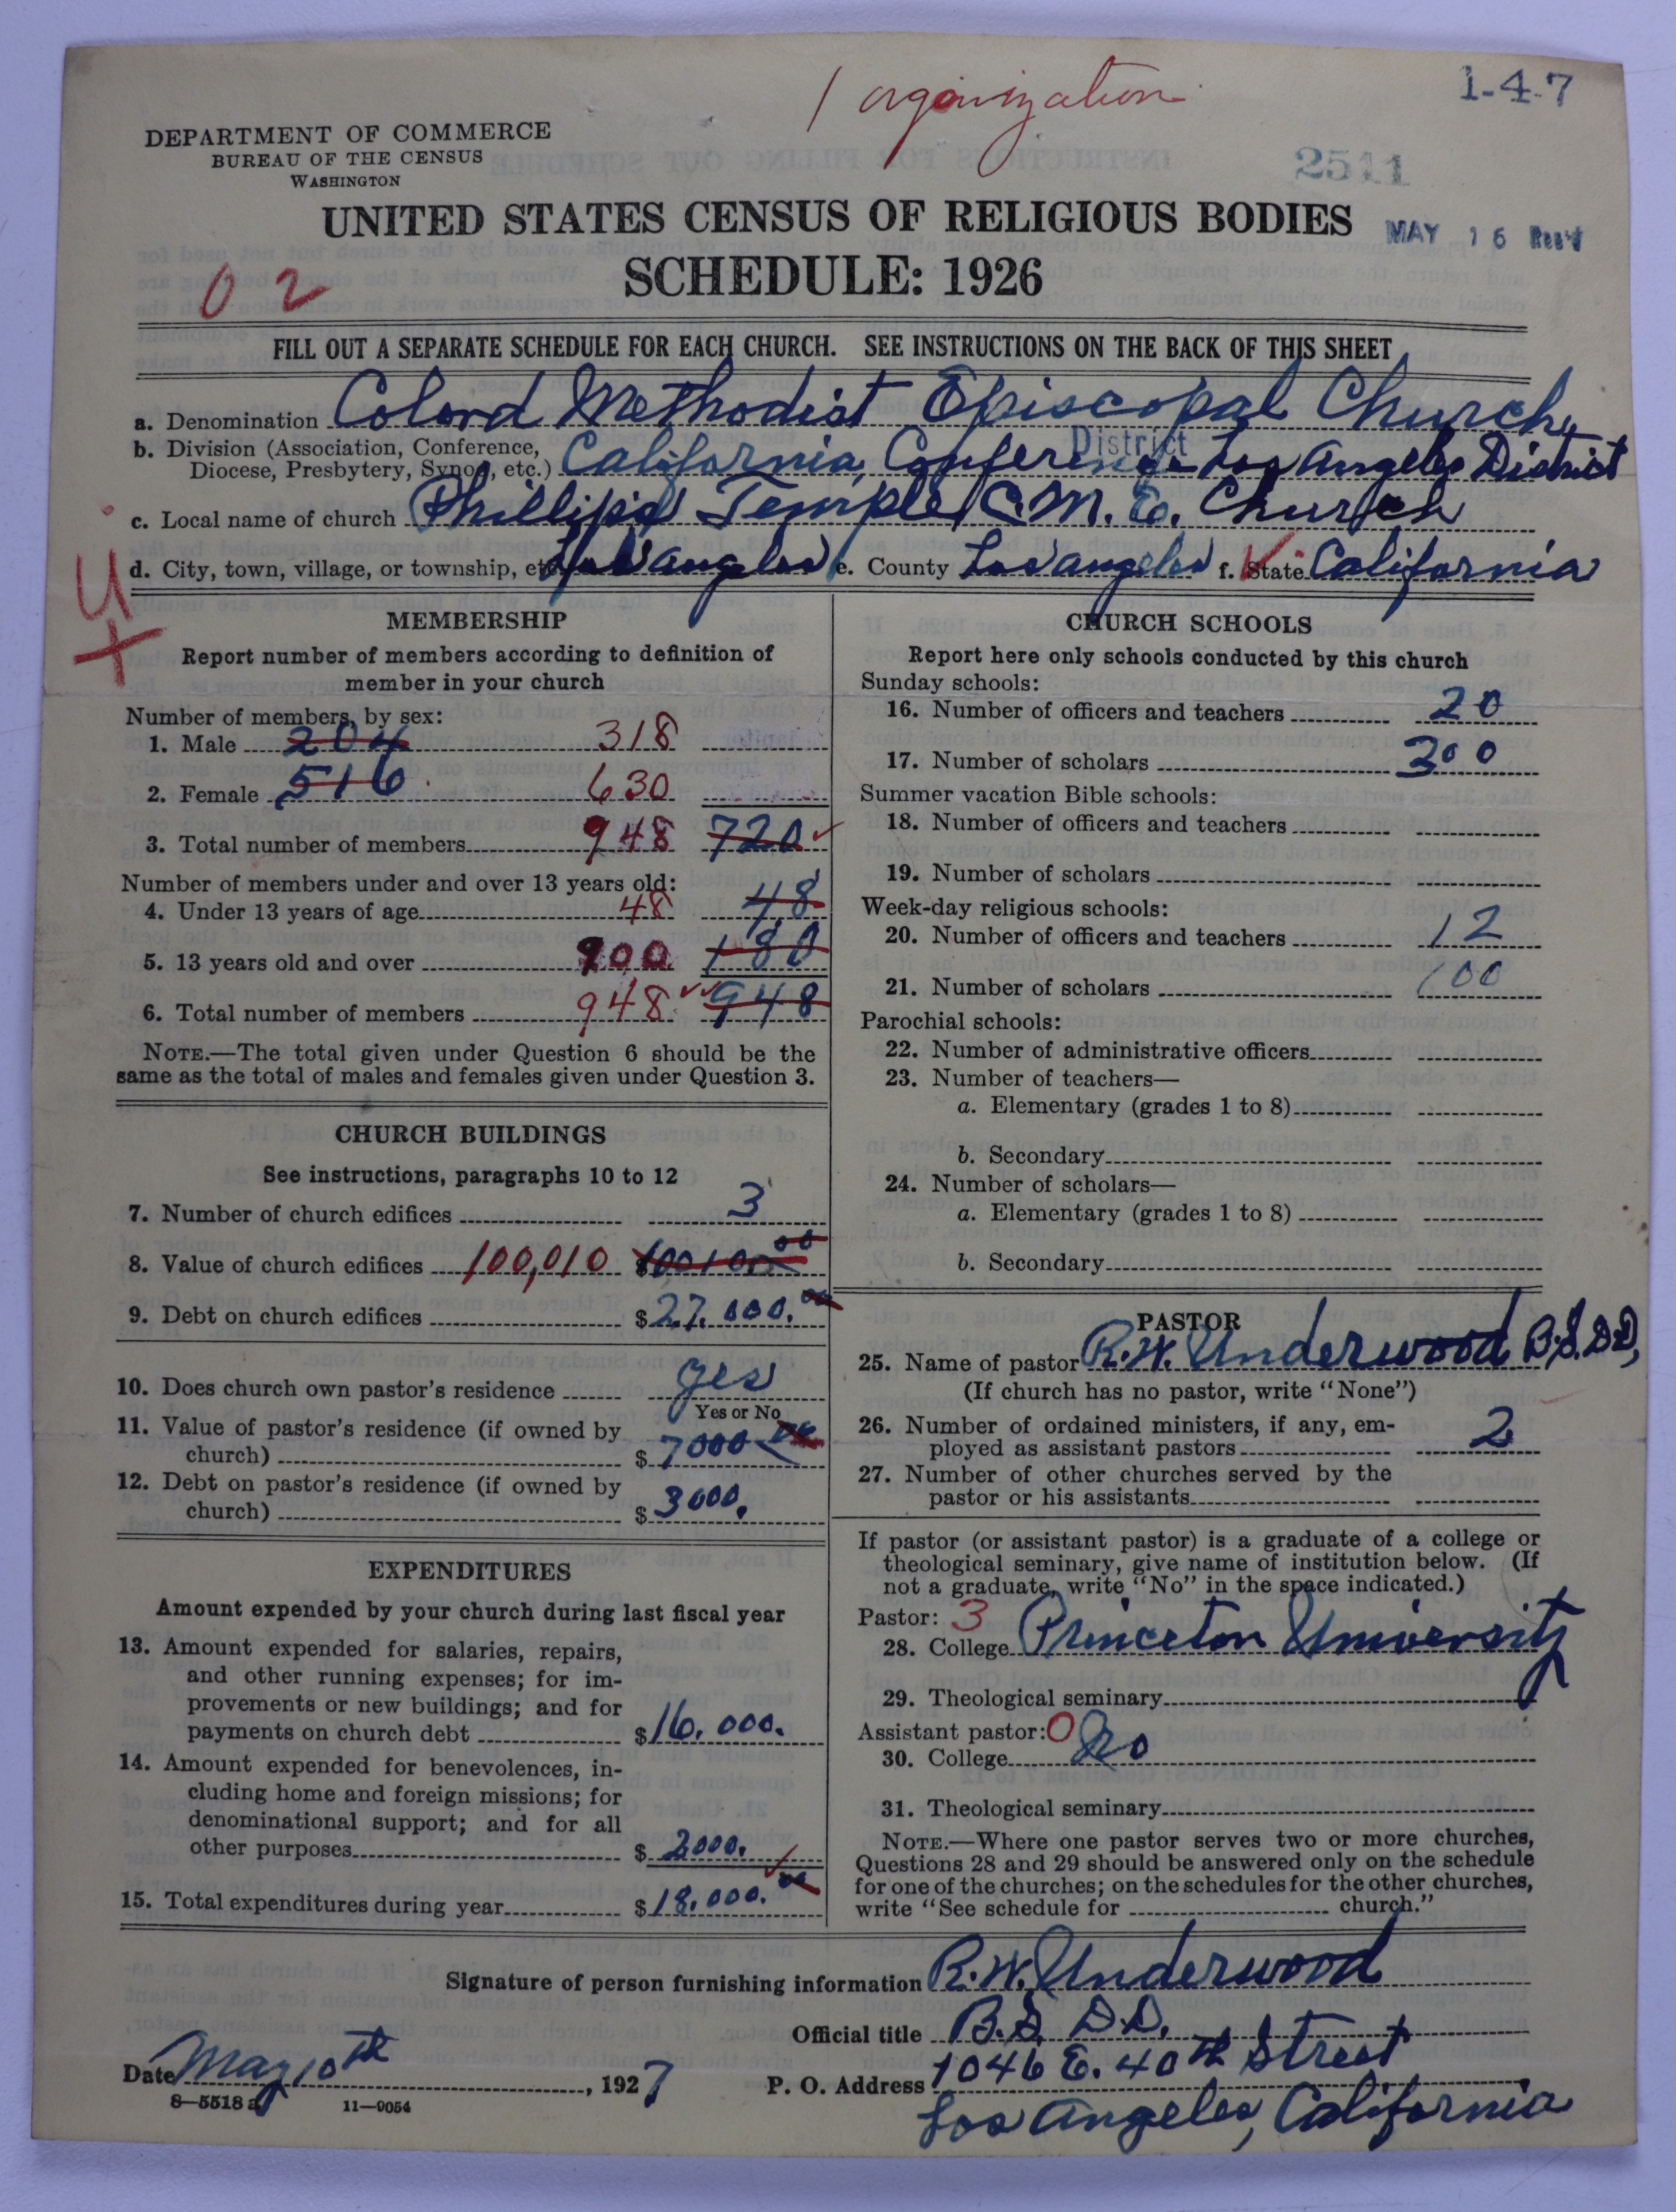 1 organization
1-4-7
DEPARTMENT OF COMMERCE
BUREAU OF THE CENSUS
WASHINGTON
2511
UNITED STATES CENSUS OF RELIGIOUS BODIES
MAY 16 Rec'd
SCHEDULE: 1926
02
FILL OUT A SEPARATE SCHEDULE FOR EACH CHURCH. SEE INSTRUCTIONS ON THE BACK OF THIS SHEET
a. Denomination Colord Methodist Episcopal Church
b. Division (Association, Conference,
Diocese, Presbytery, Synod, etc.) California Conference Los Angeles District
District
c. Local name of church Phillips Temple C.M.E. Church
d. City, town, village, or township, etc. Los Angeles e. County Los Angeles f. State California
U
+
MEMBERSHIP
Report number of members according to definition of
member in your church
Number of members, by sex:
1. Male 204 318
2. Female 516 630
3. Total number of members 948 720
Number of members under and over 13 years old:
4. Under 13 years of age 48 48
5. 13 years old and over 900 180
6. Total number of members 948 948
NOTE.—The total given under Question 6 should be the
same as the total of males and females given under Question 3.
CHURCH BUILDINGS
See instructions, paragraphs 10 to 12
7. Number of church edifices 3
8. Value of church edifices 100,010 $100100 00
9. Debt on church edifices $27.000. 00
10. Does church own pastor's residence yes
Yes or No
11. Value of pastor's residence (if owned by
church) $7000 00
12. Debt on pastor's residence (if owned by
church) $3000.
EXPENDITURES
Amount expended by your church during last fiscal year
13. Amount expended for salaries, repairs,
and other running expenses; for im-
provements or new buildings; and for
payments on church debt $16.000.
14. Amount expended for benevolences, in-
cluding home and foreign missions; for
denominational support; and for all
other purposes $2000.
15. Total expenditures during year $18.000. 00
CHURCH SCHOOLS
Report here only schools conducted by this church
Sunday schools:
16. Number of officers and teachers 20
17. Number of scholars 300
Summer vacation Bible schools:
18. Number of officers and teachers
19. Number of scholars
Week-day religious schools:
20. Number of officers and teachers 12
21. Number of scholars 100
Parochial schools:
22. Number of administrative officers
23. Number of teachers—
a. Elementary (grades 1 to 8)
b. Secondary
24. Number of scholars—
a. Elementary (grades 1 to 8)
b. Secondary
PASTOR
25. Name of pastor R.W. Underwood B.S. D.D,
(If church has no pastor, write "None")
26. Number of ordained ministers, if any, em-
ployed as assistant pastors 2
27. Number of other churches served by the
pastor or his assistants
If pastor (or assistant pastor) is a graduate of a college or
theological seminary, give name of institution below. (If
not a graduate, write "No" in the space indicated.)
Pastor: 3
28. College Princeton University
29. Theological seminary
Assistant pastor: 0
30. College No
31. Theological seminary
NOTE.—Where one pastor serves two or more churches,
Questions 28 and 29 should be answered only on the schedule
for one of the churches; on the schedules for the other churches,
write "See schedule for church."
Signature of person furnishing information R.W. Underwood
Official title B.S. D.D.
Date May 10th, 1927
P. O. Address 1046 E. 40th Street
Los Angeles, California
8—5518 a
11—9054